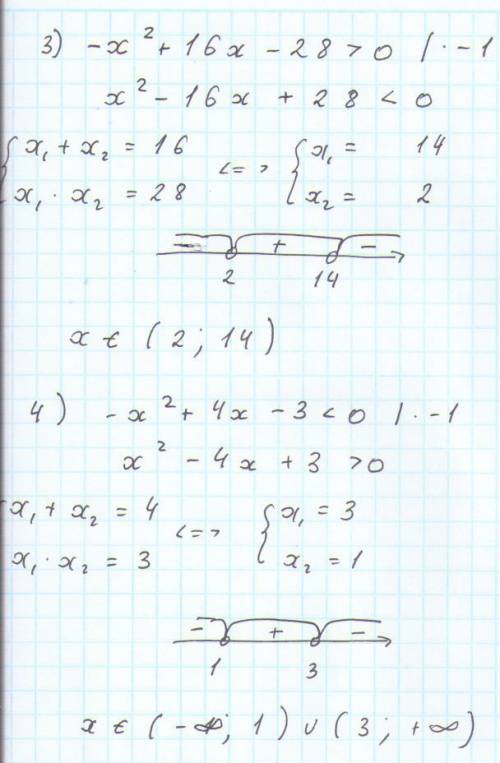 3) -x² + 16x - 28 > 0 | · -1
x² - 16x + 28 < 0
{ x₁ + x₂ = 16 <=> { x₁ = 14
x₁ · x₂ = 28 x₂ = 2
- + -
2 14
x ∈ (2; 14)
4) -x² + 4x - 3 < 0 | · -1
x² - 4x + 3 > 0
{ x₁ + x₂ = 4 <=> { x₁ = 3
x₁ · x₂ = 3 x₂ = 1
- + -
1 3
x ∈ (-∞; 1) ∪ (3; +∞)